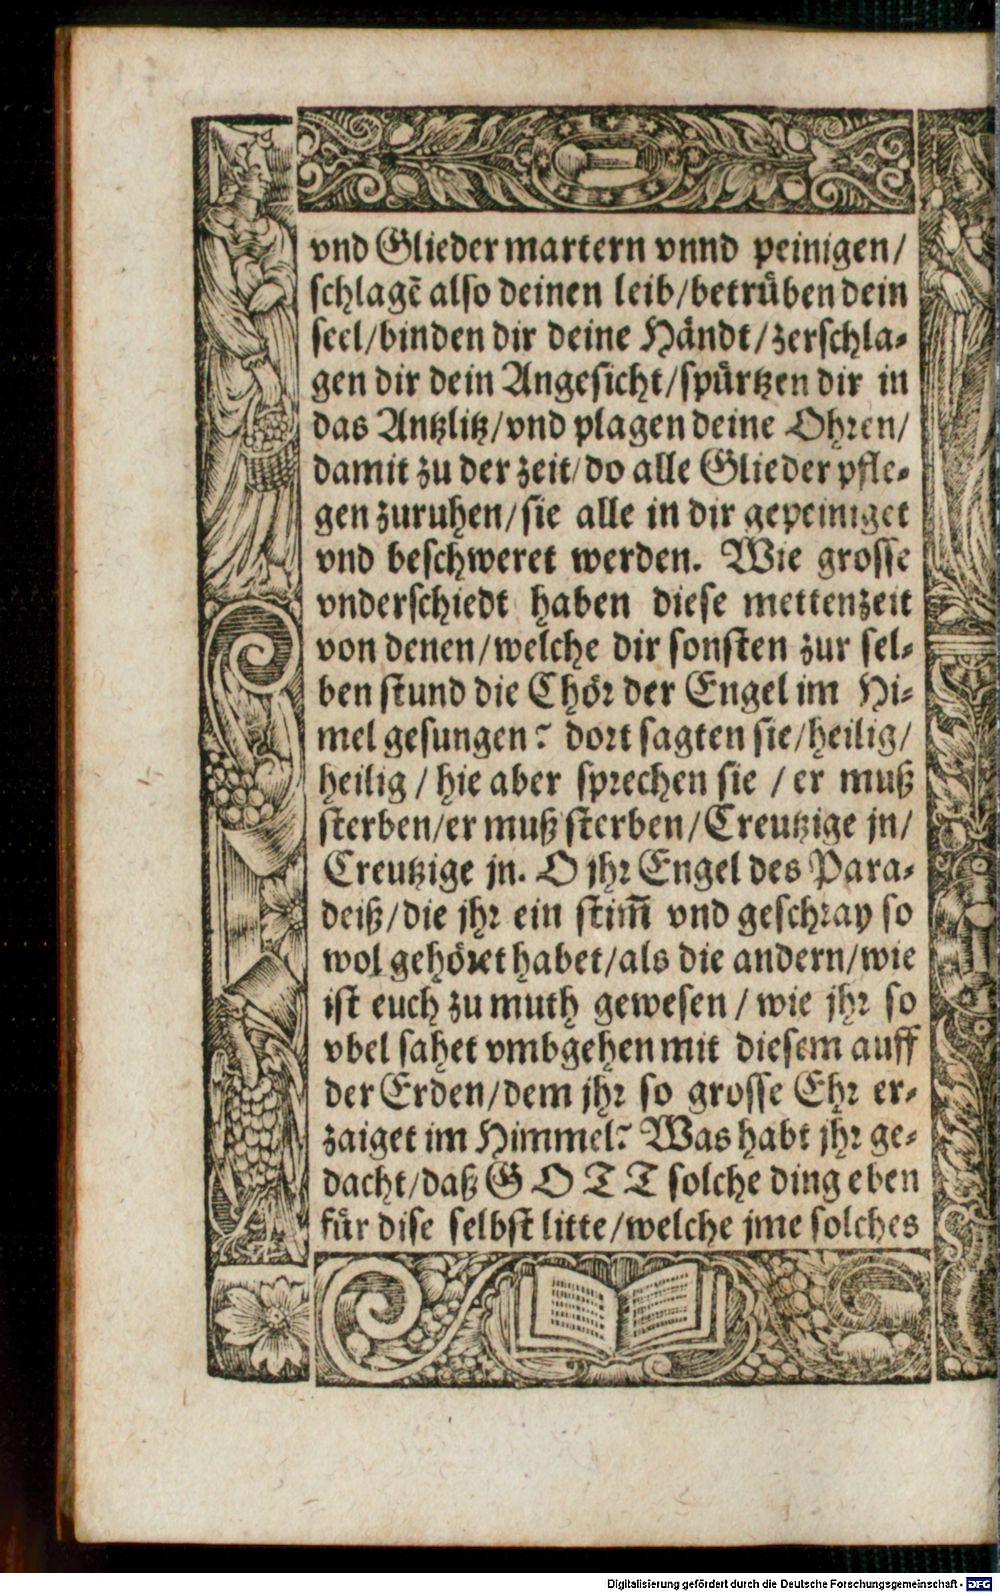 vnd Glieder martern vnnd peinigen/
schlagẽ also deinen leib/betrüben dein
seel/binden dir deine Händt/zerschla⸗
gen dir dein Angesicht/spürtzen dir in
das Antzlitz/vnd plagen deine Ohren/
damit zu der zeit/do alle Glieder pfle⸗
gen zuruhen/sie alle in dir gepeiniget
vnd beschweret werden. Wie grosse
vnderschiedt haben diese mettenzeit
von denen/welche dir sonsten zur sel⸗
ben stund die Chör der Engel im Hi⸗
mel gesungen? dort sagten sie/heilig/
heilig / hie aber sprechen sie / er muß
sterben/er muß sterben/Creutzige jn/
Creutzige jn. O jhr Engel des Para⸗
deiß/die jhr ein stim̃ vnd geschray so
wol gehöret habet/als die andern/wie
ist euch zu muth gewesen / wie jhr so
vbel sahet vmbgehen mit diesem auff
der Erden/dem jhr so grosse Ehr er⸗
zaiget im Himmel? Was habt jhr ge⸗
dacht/daß GOTT solche ding eben
für dise selbst litte/welche jme solches
Digitalisierung gefördert durch die Deutsche Forschungsgemeinschaft - DFG